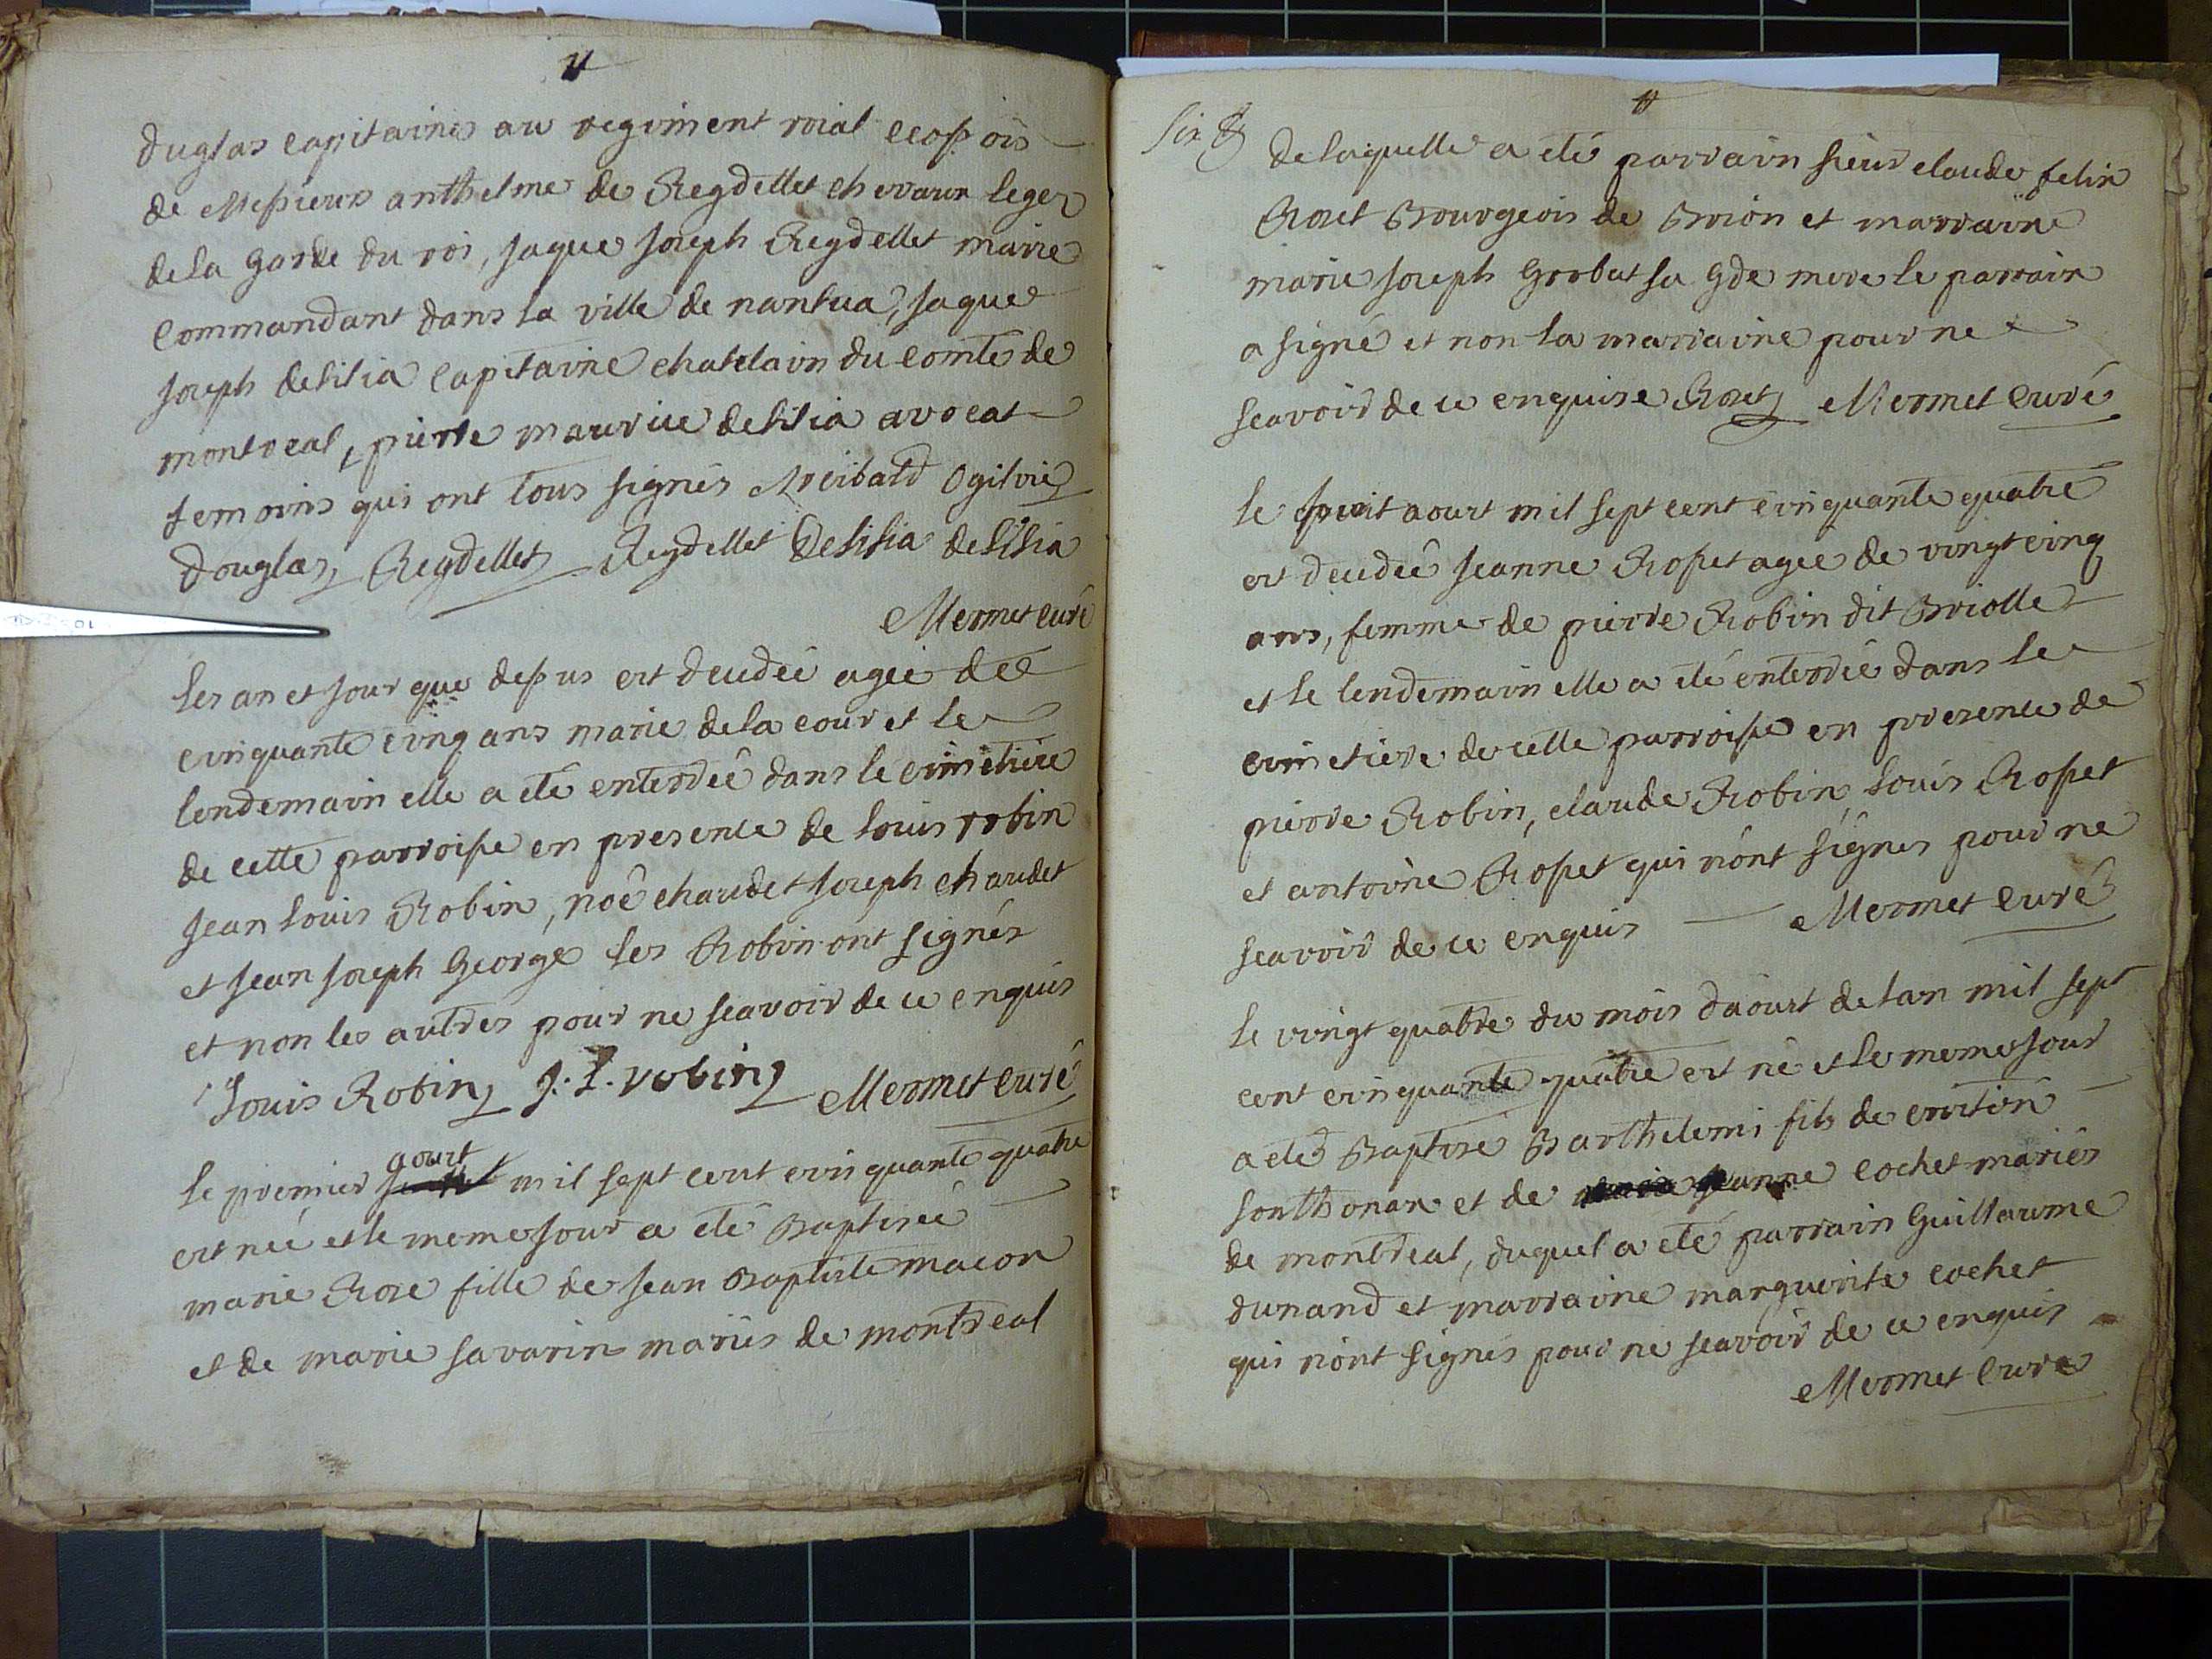 duglas capitaines au regiment roial ecossois
de Messieurs anthelme de Regdellet chevaux leger
de la garde du roi, jaque joseph Regdellet maire
commandant dans la ville de nantua, jaque
joseph delilia capitaine chatelain du comte de
montreal, pierre maurice delilia avocat
temoins qui ont tous signés Archibald Ogilvie
Douglas, Regdellet Regdellet Delilia delilia
Mermet curé
les an et jour que dessus est decedée agée de
cinquante cinq ans marie de la cour et le
lendemain elle a été enterrée dans le cimetiere
de cette parroisse en presence de louis robin
jean louis Robin, noê chaudet joseph chaudet
et jean joseph George les Robin ont signés
et non les autres pour ne scavoir de ce enquis
Louis Robin J. L. robin Mermet curé
aoust
le premier mil sept cent cinquante quatre
est née et le meme jour a été Baptisée
marie Rose fille de jean Baptiste macon
et de marie savarin mariés de montreal
Six
de laquelle a été parrain sieur claude felix
Roset Bourgeois de Brion et marraine
marie joseph Grobat sa gde mere le parrain
a signé et non la marraine pour ne
scavoir de ce enquise Roset Mermet curé
le huit aoust mil sept cent cinquante quatre
est decedée jeanne Rosset agée de vingt cinq
ans, femme de pierre Robin dit Briolle
et le lendemain elle a été enterrée dans le
cimetiere de cette parroisse en presence de
pierre Robin, claude Robin, louis Rosset
et antoine Rosset qui n'ont signés pour ne
scavoir de ce enquis Mermet curé
le vingt quatre du mois d'aoust de lan mil sept
cent cinquante quatre est né et le meme jour
a été Baptisé Barthelemi fils de
sonthonax et de jeanne cochet mariés
de montreal, duquel a été parrain Guillaume
dunand et marraine marguerite cochet
qui n'ont signés pour ne scavoir de ce enquis
Mermet curé